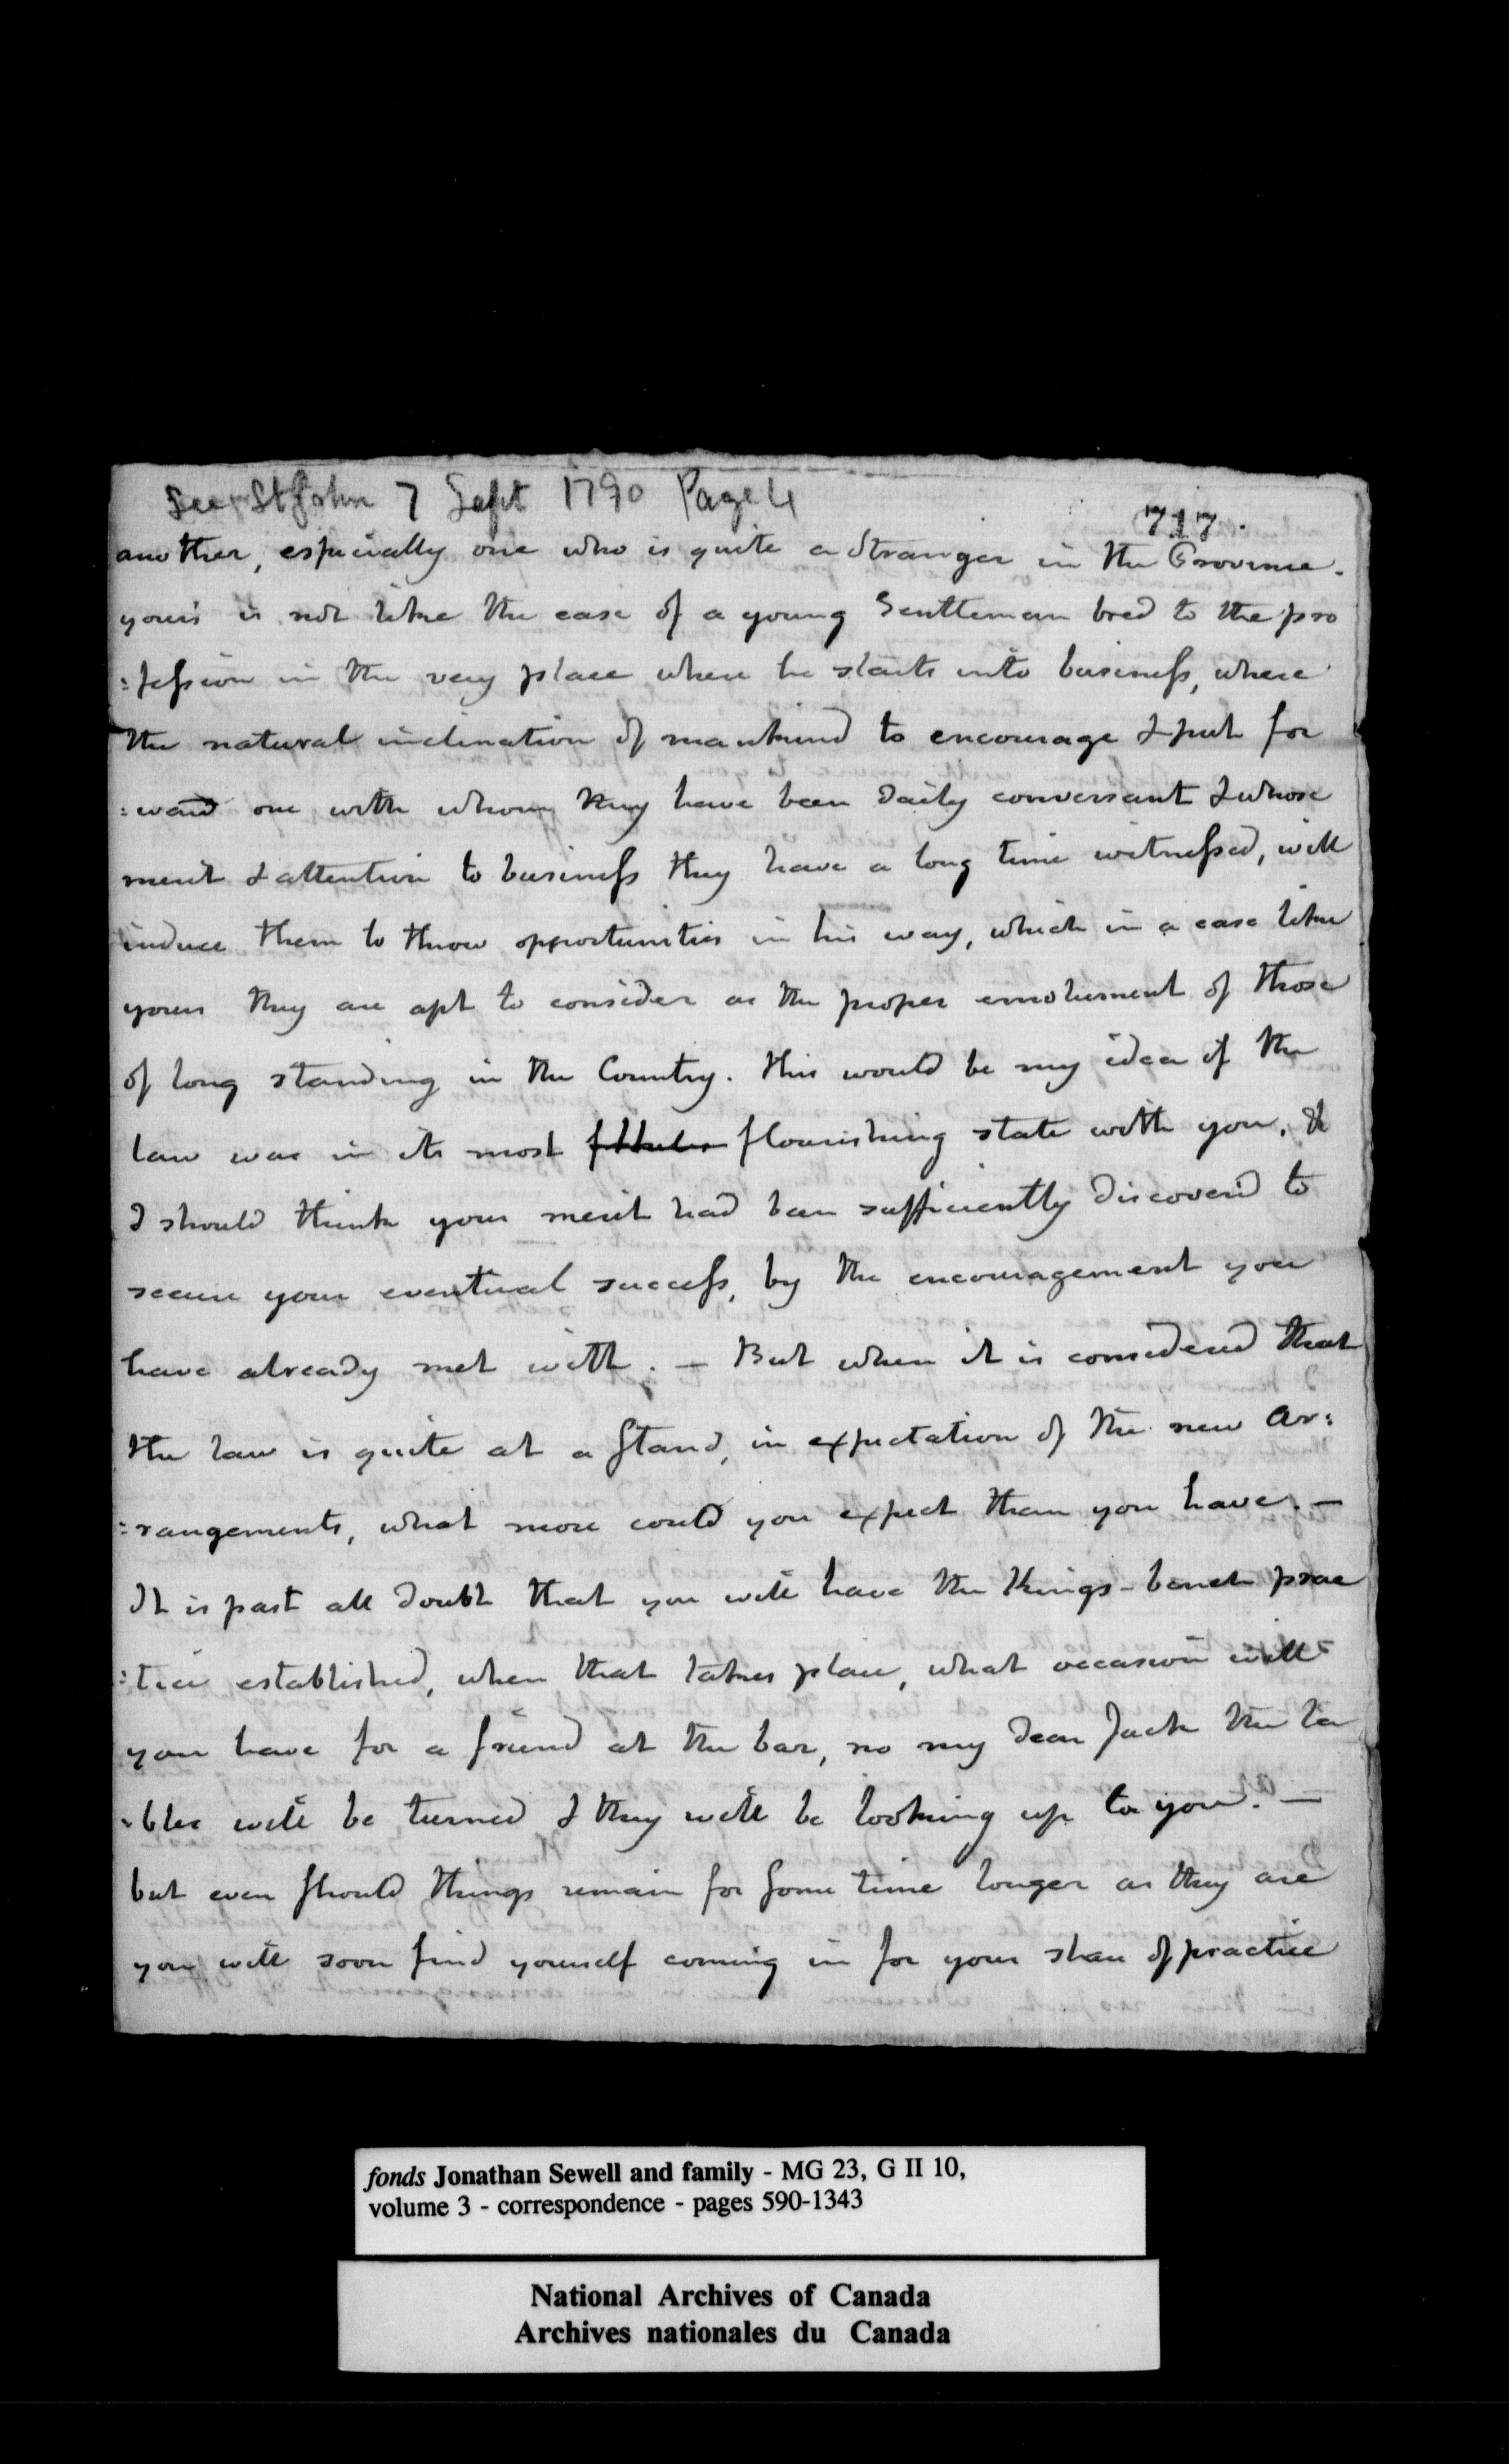 See St John 7 Sept 1790 Page 4
717.
another, especially one who is quite a Stranger in the Province.
yours is not like the case of a young Gentleman bred to the pro
:fession in the very place where he starts into business, where
the natural inclination of mankind to encourage & put for
:ward one with whom they have been daily conversant & whose
merit & attention to business they have a long time witnessed, will
induce them to throw opportunities in his way, which in a case like
yours they are apt to consider as the proper emolument of those
of long standing in the Country. this would be my idea if the
law was in its most flourishing state with you, &
I should think your merit had been sufficiently discover'd to
secure your eventual success, by the encouragement you
have already met with. — But when it is considered that
the law is quite at a Stand, in expectation of the new ar:
:rangements, what more could you expect than you have. —
It is past all doubt that you will have the Kings-bench prac
:tice established, when that takes place, what occasion will
you have for a friend at the bar, no my dear Jack the ta
:bles will be turned & they will be looking up to you. —
but even should things remain for some time longer as they are
you will soon find yourself coming in for your share of practice
fonds Jonathan Sewell and family - MG 23, G II 10,
volume 3 - correspondence - pages 590-1343
National Archives of Canada
Archives nationales du Canada